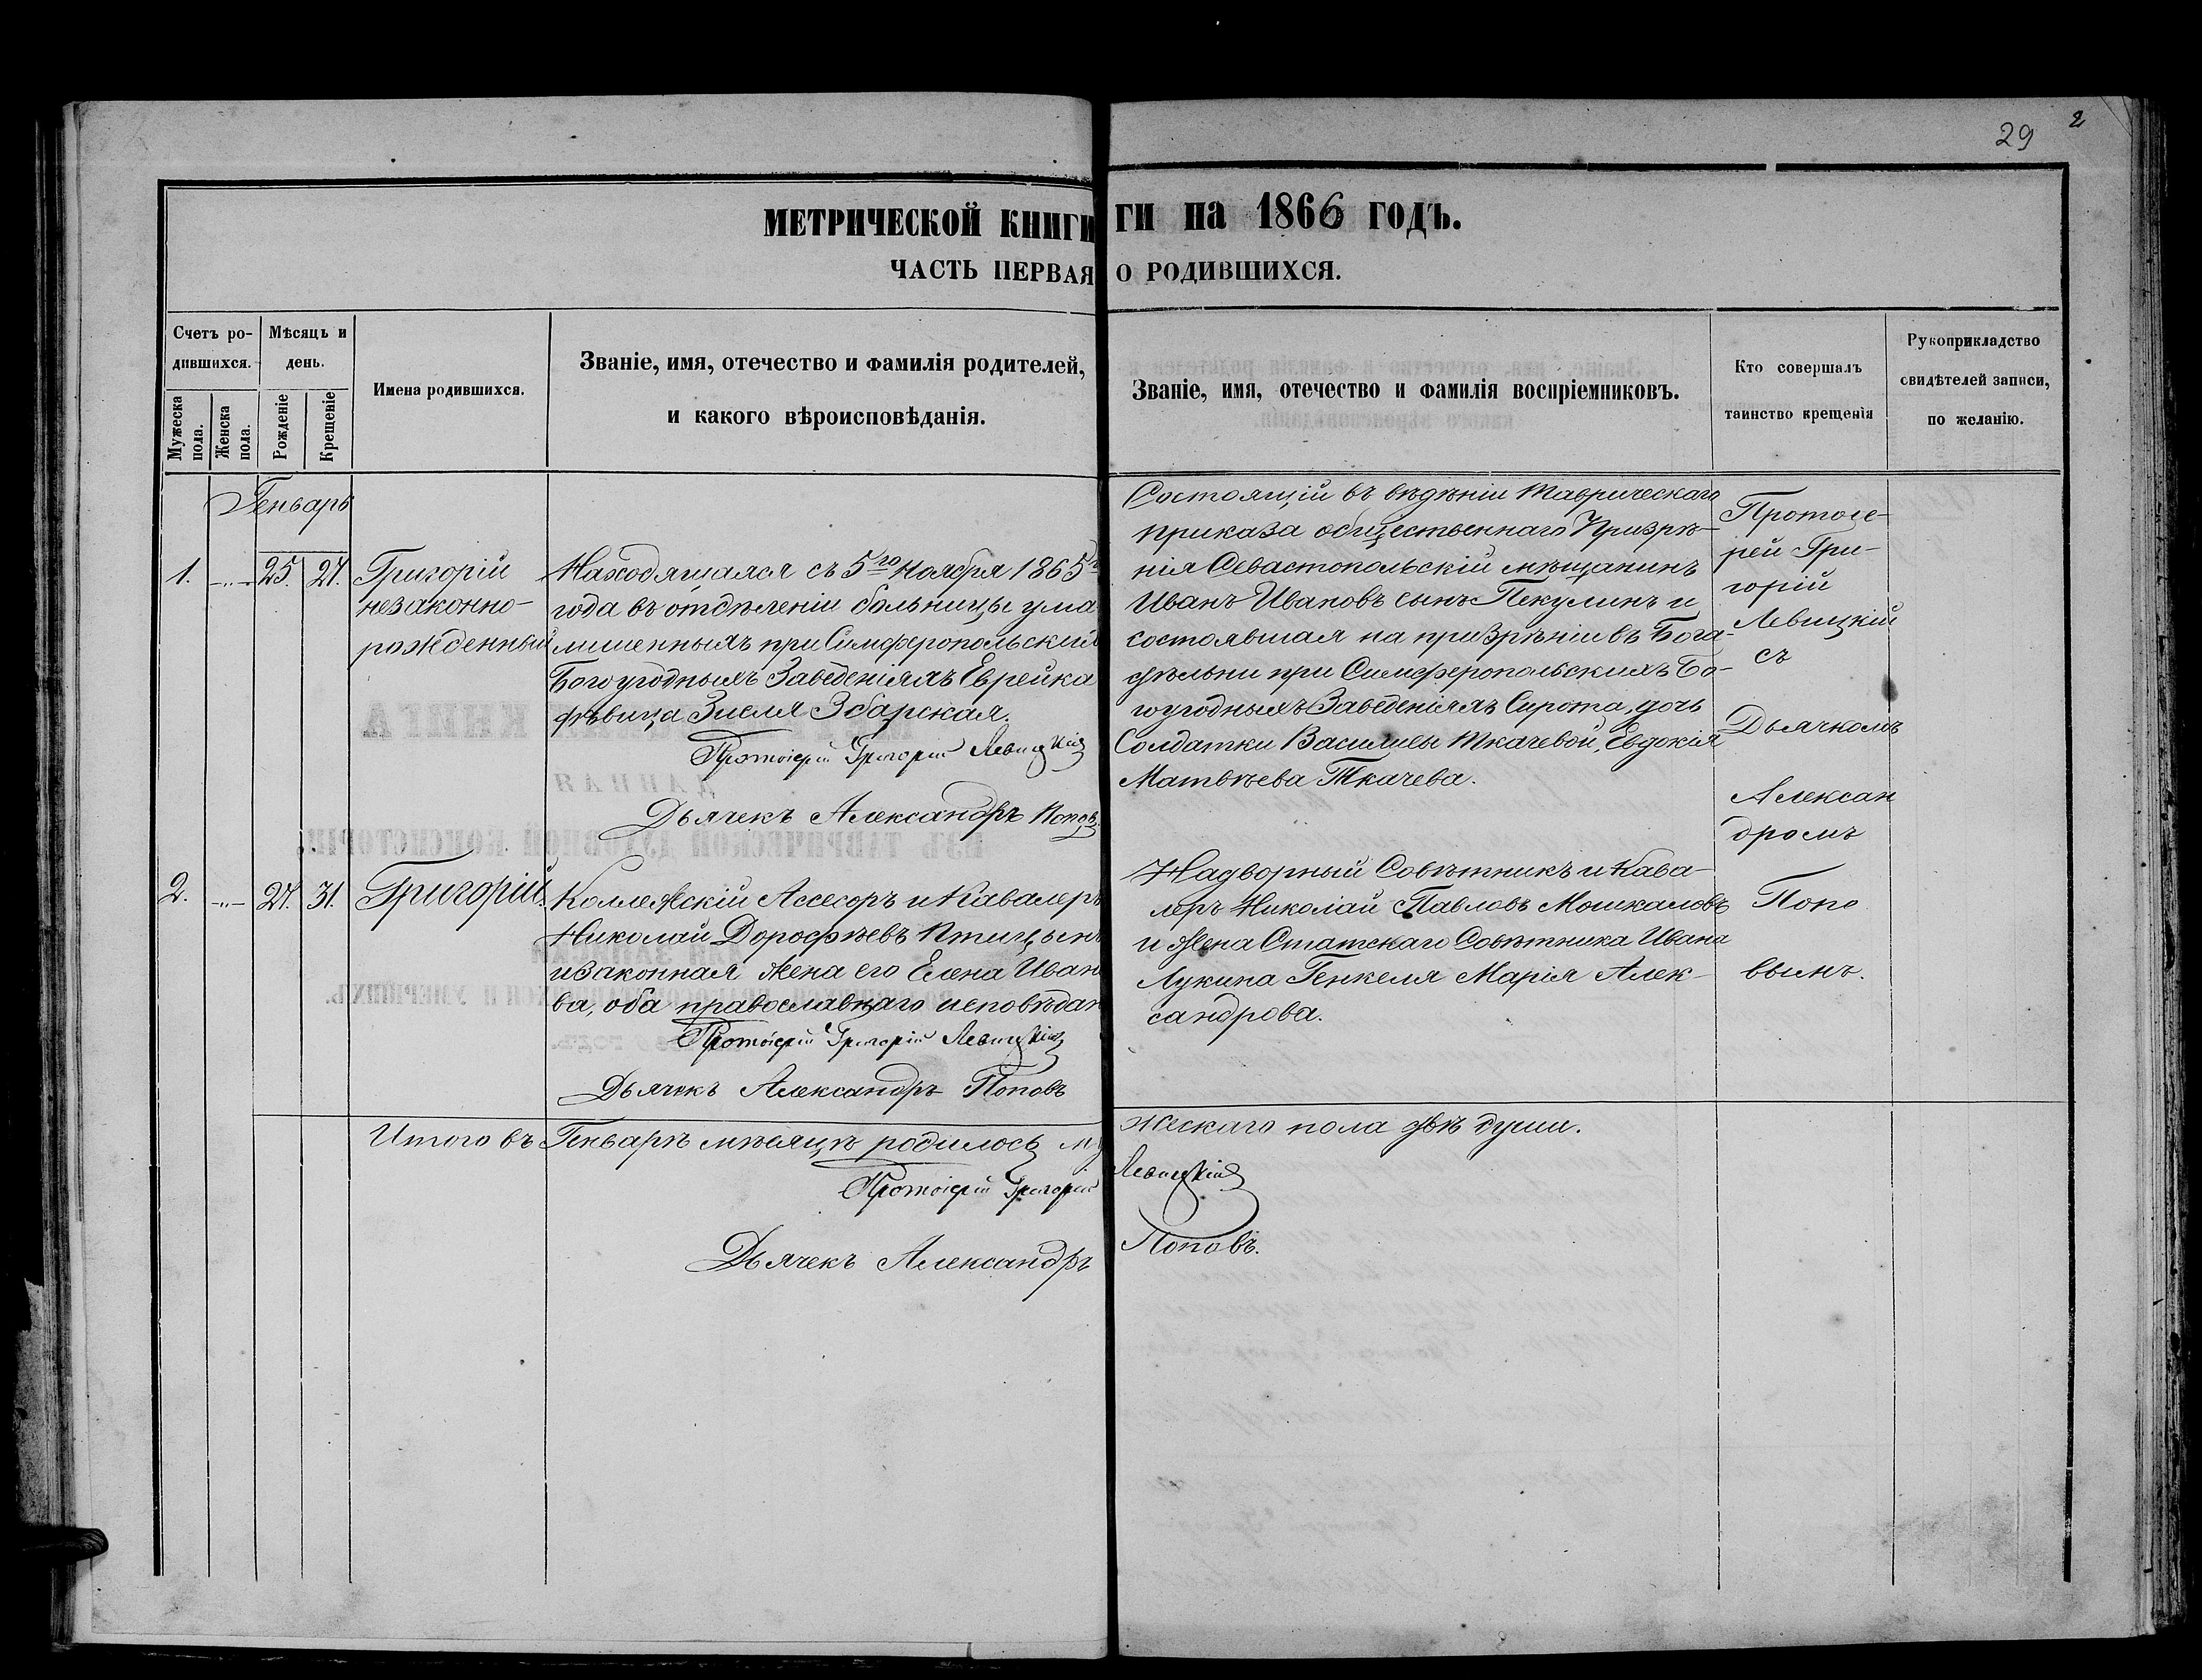 29 2
МЕТРИЧЕСКОЙ КНИГИ
ги на 1866 годъ.
ЧАСТЬ ПЕРВАЯ
О РОДИВШИХСЯ.
Счетъ ро-
дившихся.
Мужеска
пола.
Женска
пола.
Мѣсяць и
день.
Рожденіе
Крещеніе
Имена родившихся.
Званіе, имя, отечество и фамилія родителей,
и какого вѣроисповѣданія.
Званіе, имя, отечество и фамилія воспріемниковъ.
Кто совершалъ
таинство крещенія
Рукоприкладство
свидѣтелей записи,
по желанію.
Генварь
1. -"- 25. 27.
Григорій
незаконно-
рожденный
Находящаяся съ 5го Ноября 1865г
года въ отдѣленіи больницы ума
лишенныхъ при Симферопольскихъ
Богоугодныхъ Заведеніяхъ Еврейка
дѣвица Зисля Збарская.
Протоіерій Григорій Левицкій
Дьячекъ Александръ Поповъ.
Состоящій въ вѣдѣніи Таврическаго
приказа общественнаго Призрѣ-
нія Севастопольскій мѣщанинъ
Иванъ Ивановъ сынъ Пекулинъ и
состоявшая на призрѣніи въ Бога-
дѣльни при Симферопольскихъ Бо-
гоугодныхъ Заведеніяхъ Сирота, дочь
Солдатки Василисы Ткачевой, Евдокія
Матвѣева Ткачева.
Протоіе-
рей Гри-
горій
Левицкій
съ
Дьячкомъ
Алексан
дромъ
Попо
вымъ.
2. -"- 27. 31.
Григорій.
Коллежскій Ассесоръ и Кавалеръ
Николай Дорофѣевъ Птицынъ
и законная жена его Елена Иван
ва, оба православнаго исповѣдан
Протоіерій Григорій Левицкій
Дьячекъ Александръ Поповъ
Надворный Совѣтникъ и Кава-
леръ Николай Павловъ Мошкаловъ
и жена Статскаго Совѣтника Ивана
Лукина Генкеля Марія Алек-
сандрова.
Итого въ Генварѣ мѣсяцѣ родилось му
жескаго пола двѣ души.
Протоіерій Григорій Левицкій
Дьячекъ Александръ Поповъ.